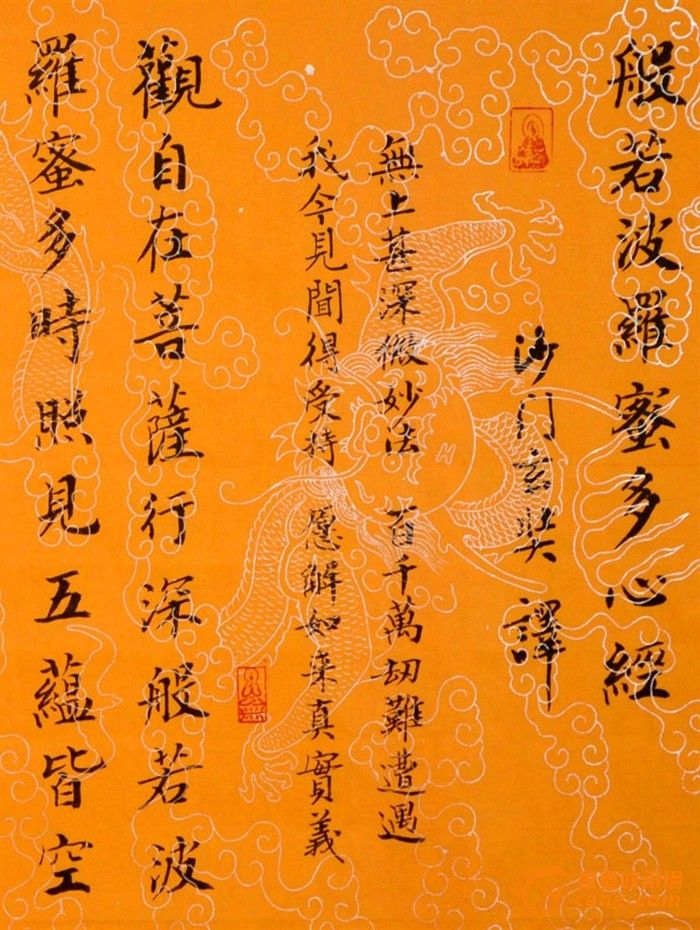 般若波羅蜜多心經
沙门玄奘 譯
無上甚深微妙法 百千萬劫難遭遇
我今見聞得受持 愿解如来真實義
觀自在菩薩行深般若波
羅蜜多時照見五蘊皆空